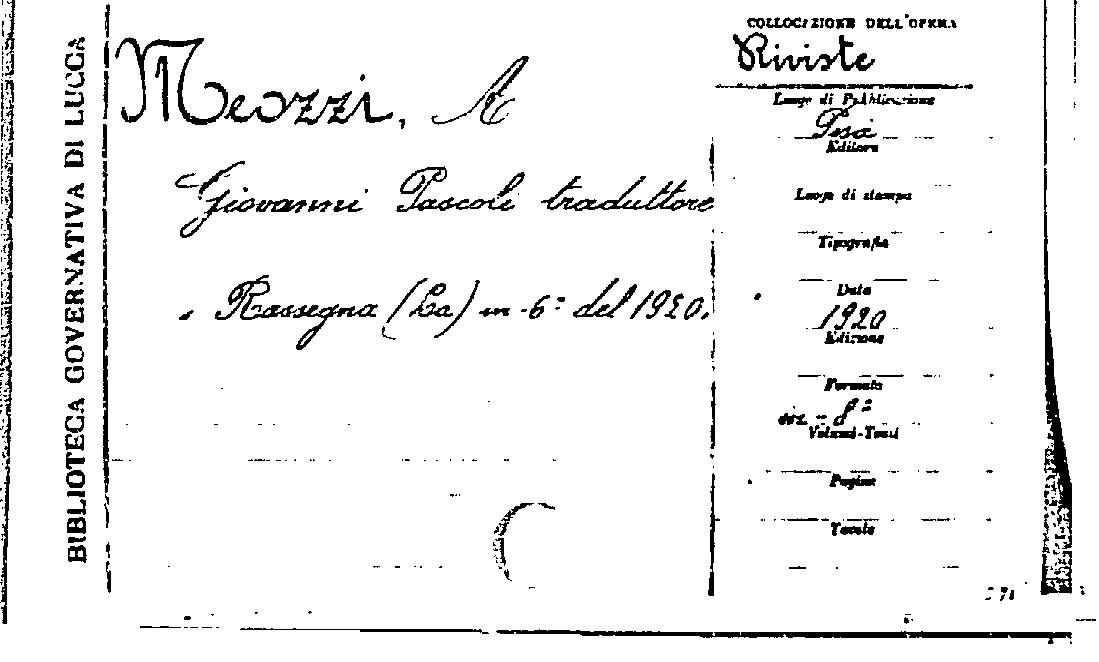 BIBLIOTECA GOVERNATIVA DI LUCCA
Meozzi, A
Giovanni Pascoli traduttore
Rassegna (La) in 6° del 1920.
COLLOCAZIONE DELL'OPERA
Riviste
Luogo di Pubblicazione
Editore
Luogo di stampa
Tipografia
Data
1920
Edizione
Formato
in - 8°
Volumi-Tomi
Pagine
Tavole